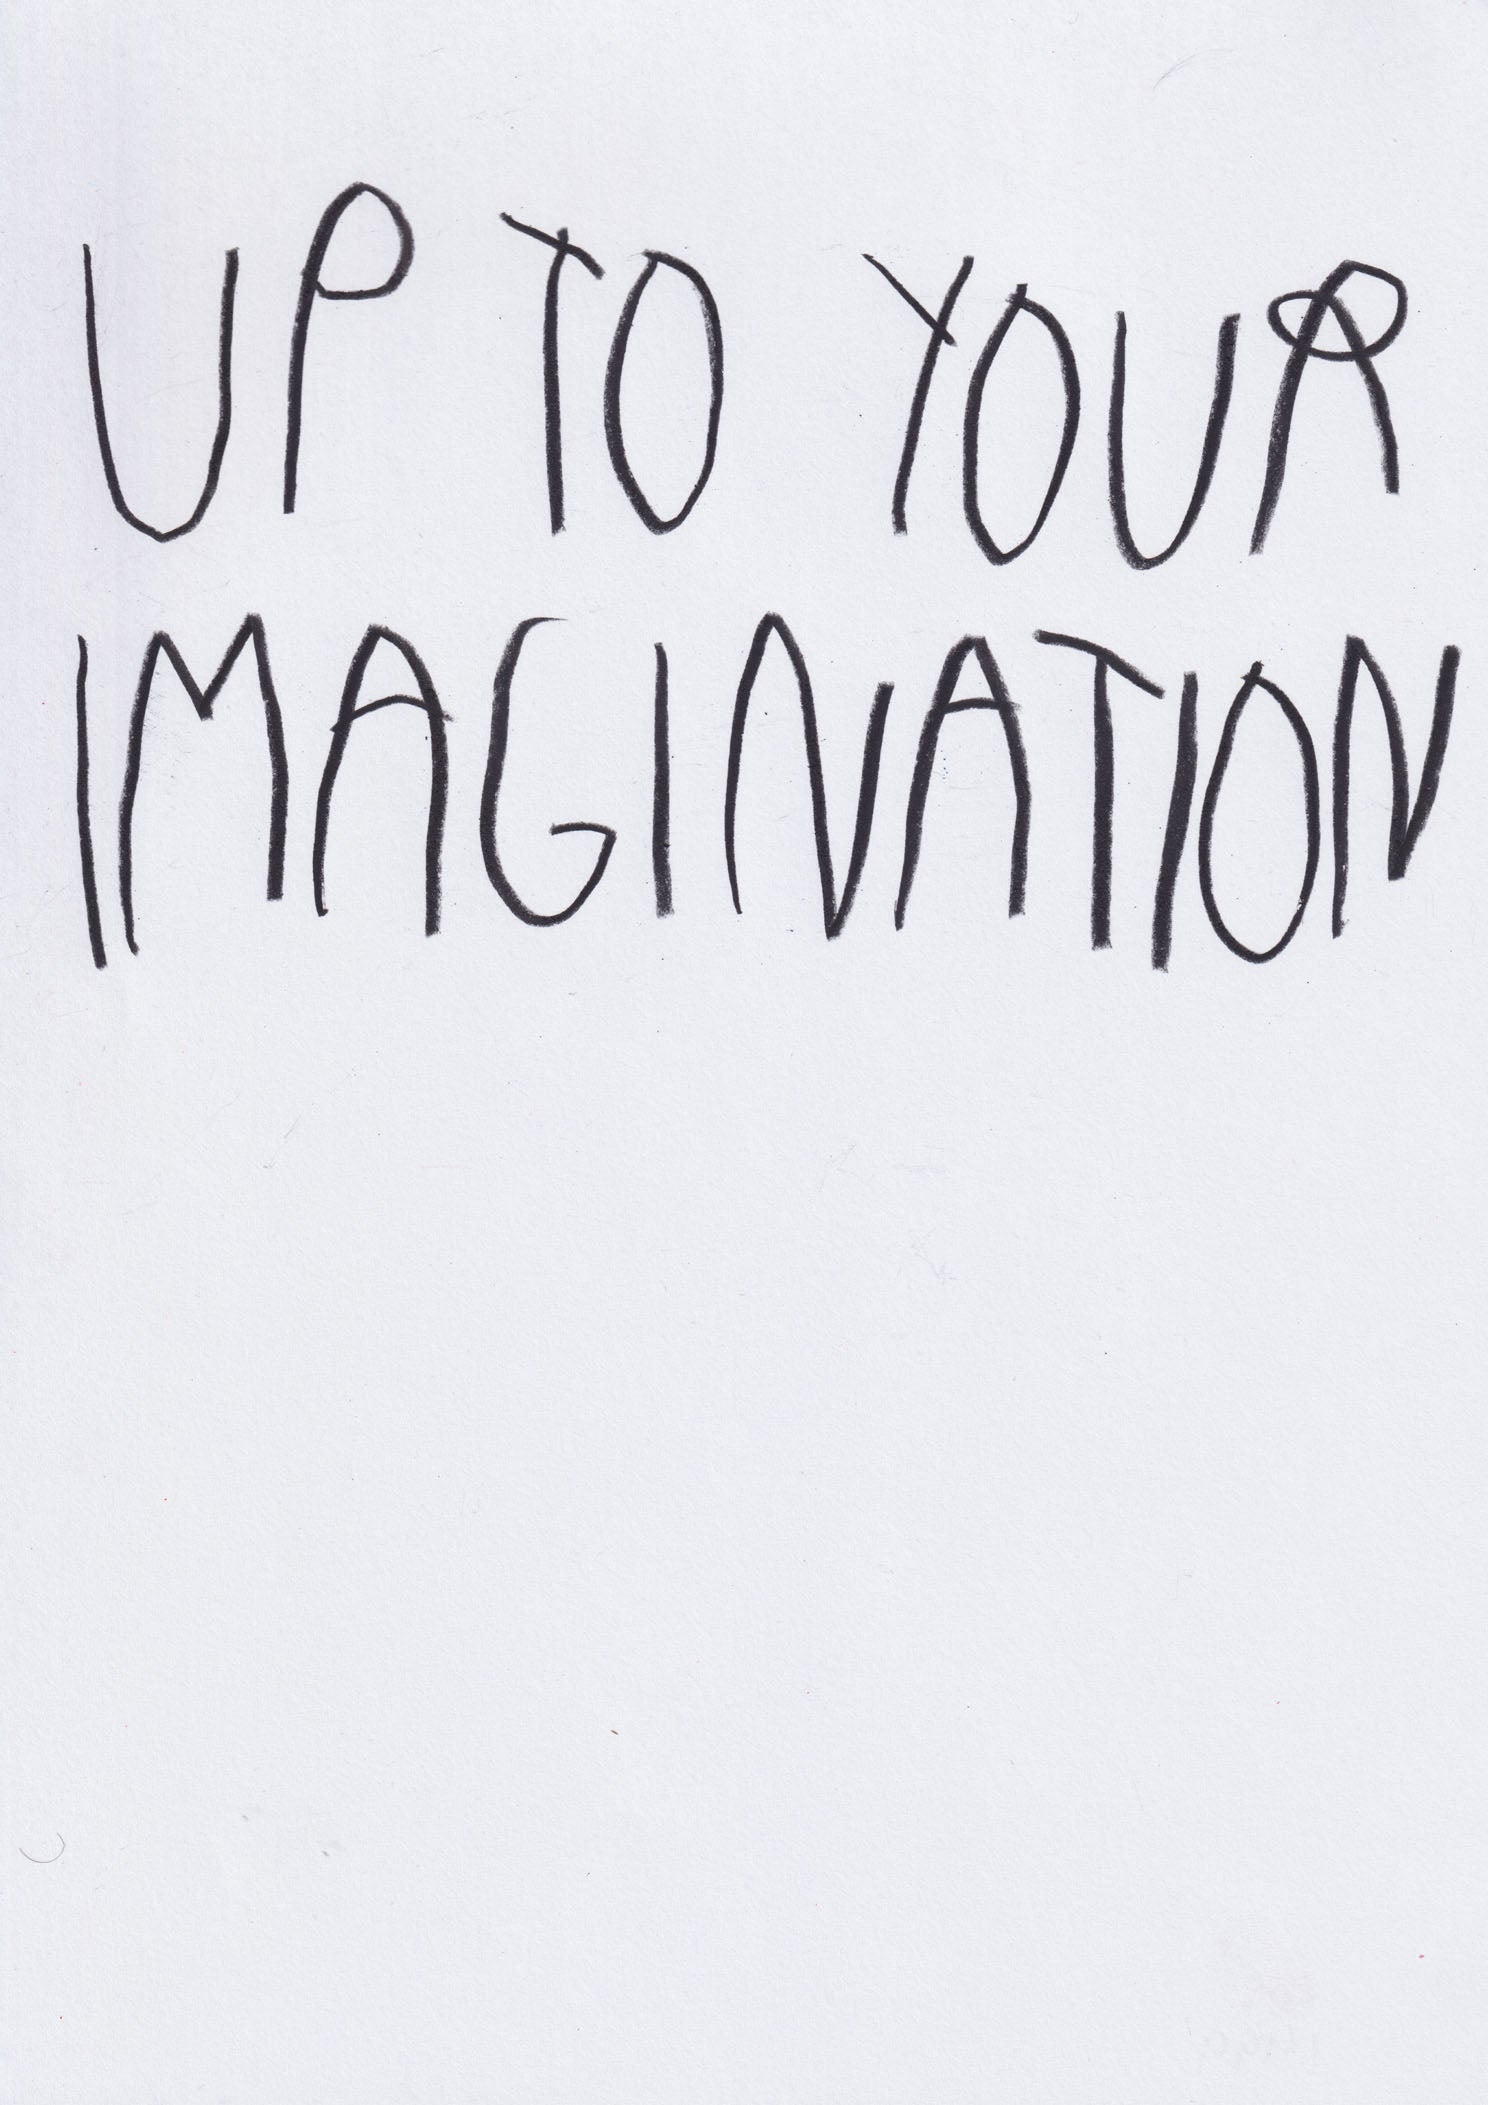 UP TO YOUR
IMAGINATION